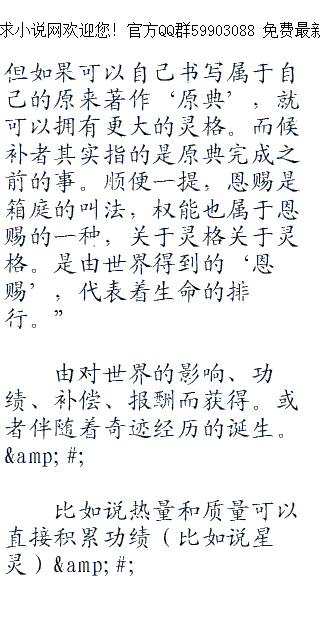 求小说网欢迎您！官方QQ群59903088 免费最新
但如果可以自己书写属于自
己的原来著作‘原典’，就
可以拥有更大的灵格。而候
补者其实指的是原典完成之
前的事。顺便一提，恩赐是
箱庭的叫法，权能也属于恩
赐的一种，关于灵格关于灵
格。是由世界得到的‘恩
赐’，代表着生命的排
行。”
由对世界的影响、功
绩、补偿、报酬而获得。或
者伴随着奇迹经历的诞生。
&amp;#;
比如说热量和质量可以
直接积累功绩（比如说星
灵）&amp;#;